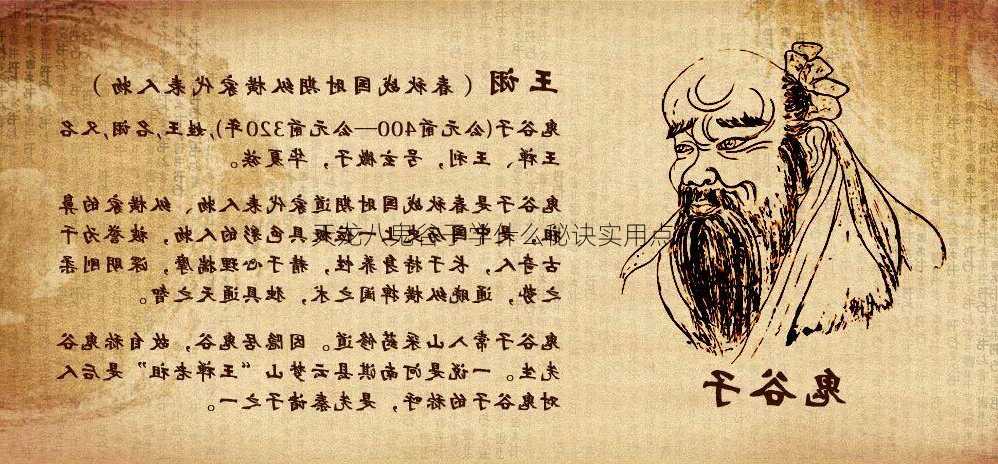 王诩（春秋战国时期纵横家代表人物）
鬼谷子(公元前400—公元前320年),姓王,名诩,又名
王禅、王利，号玄微子，华夏族。
鬼谷子是春秋战国时期道家代表人物、纵横家的鼻
祖，是中国历史上 极具色彩的人物，被誉为千
天龙八鬼谷子学什么秘诀实用点
古奇人，长于持身养性，精于心理揣摩，深明刚柔
之势，通晓纵横捭阖之术，独具通天之智。
鬼谷子常入山采药修道。因隐居鬼谷，故自称鬼谷
先生。一说是河南淇县云梦山“王禅老祖”是后人
对鬼谷子的称呼，是先秦诸子之一。
鬼谷子